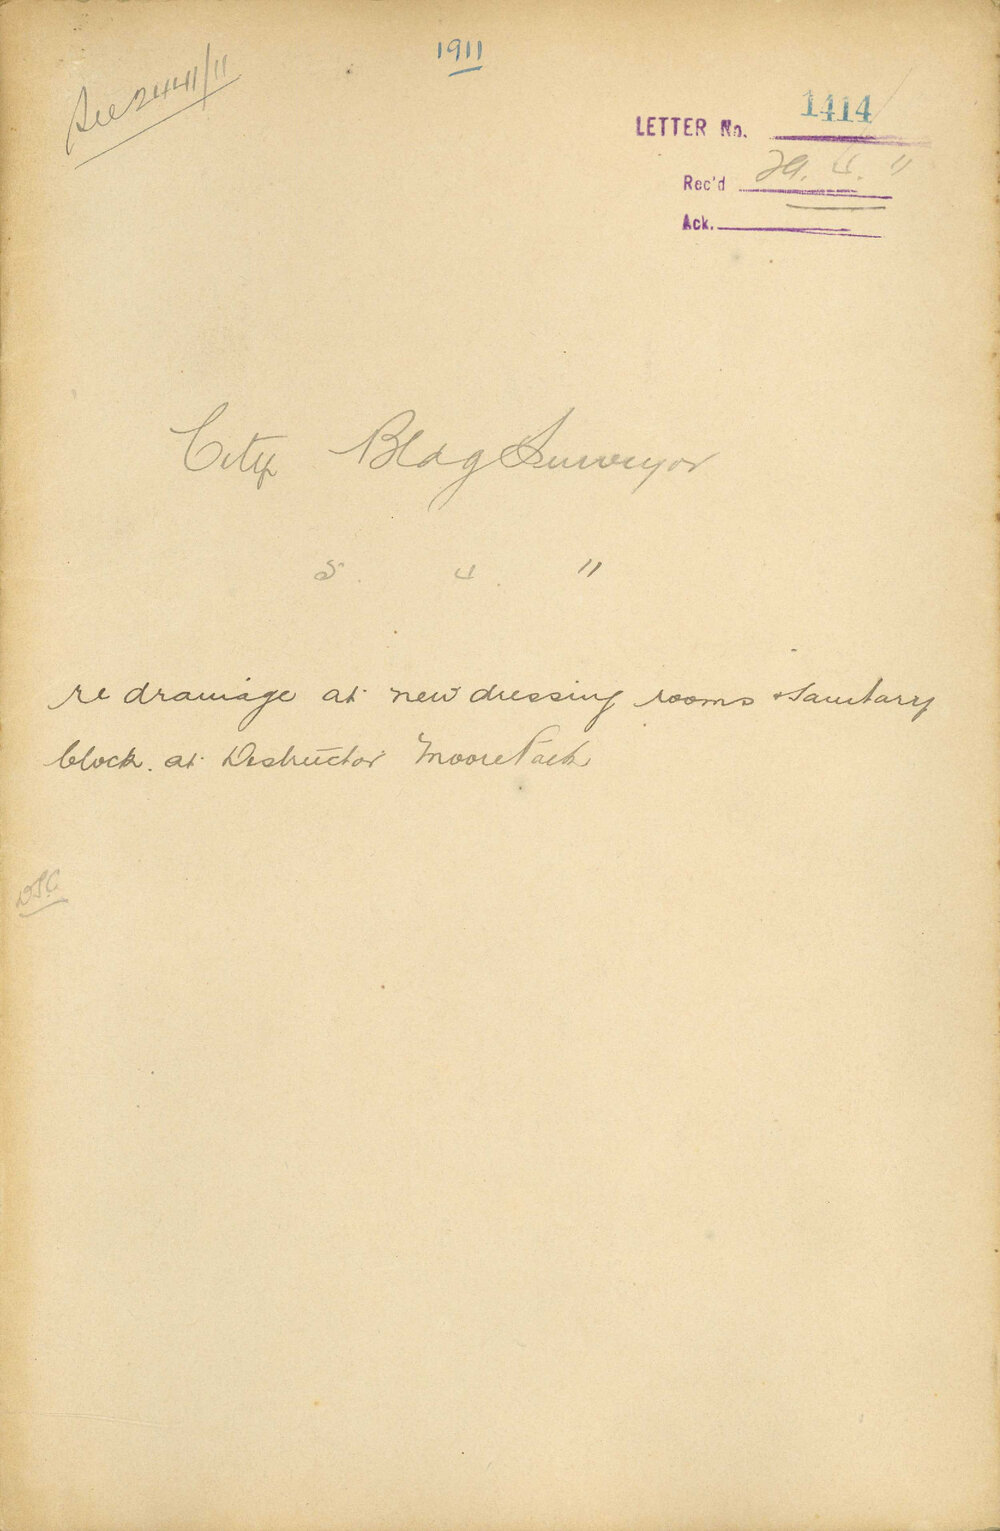 1911
See 2441/11
LETTER No. 1414
Rec'd 29. 4. 11
Ack.
City Bldg Surveyor
5. 4. 11
re drainage at new dressing rooms & Sanitary
block. at Destructor Moore Park